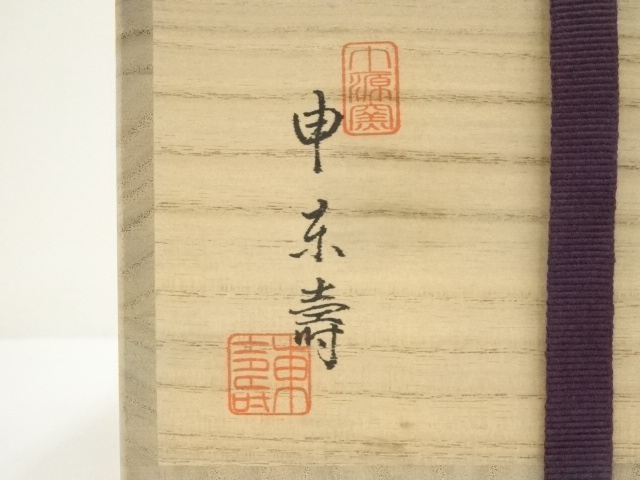 申東壽
小源窯
東壽